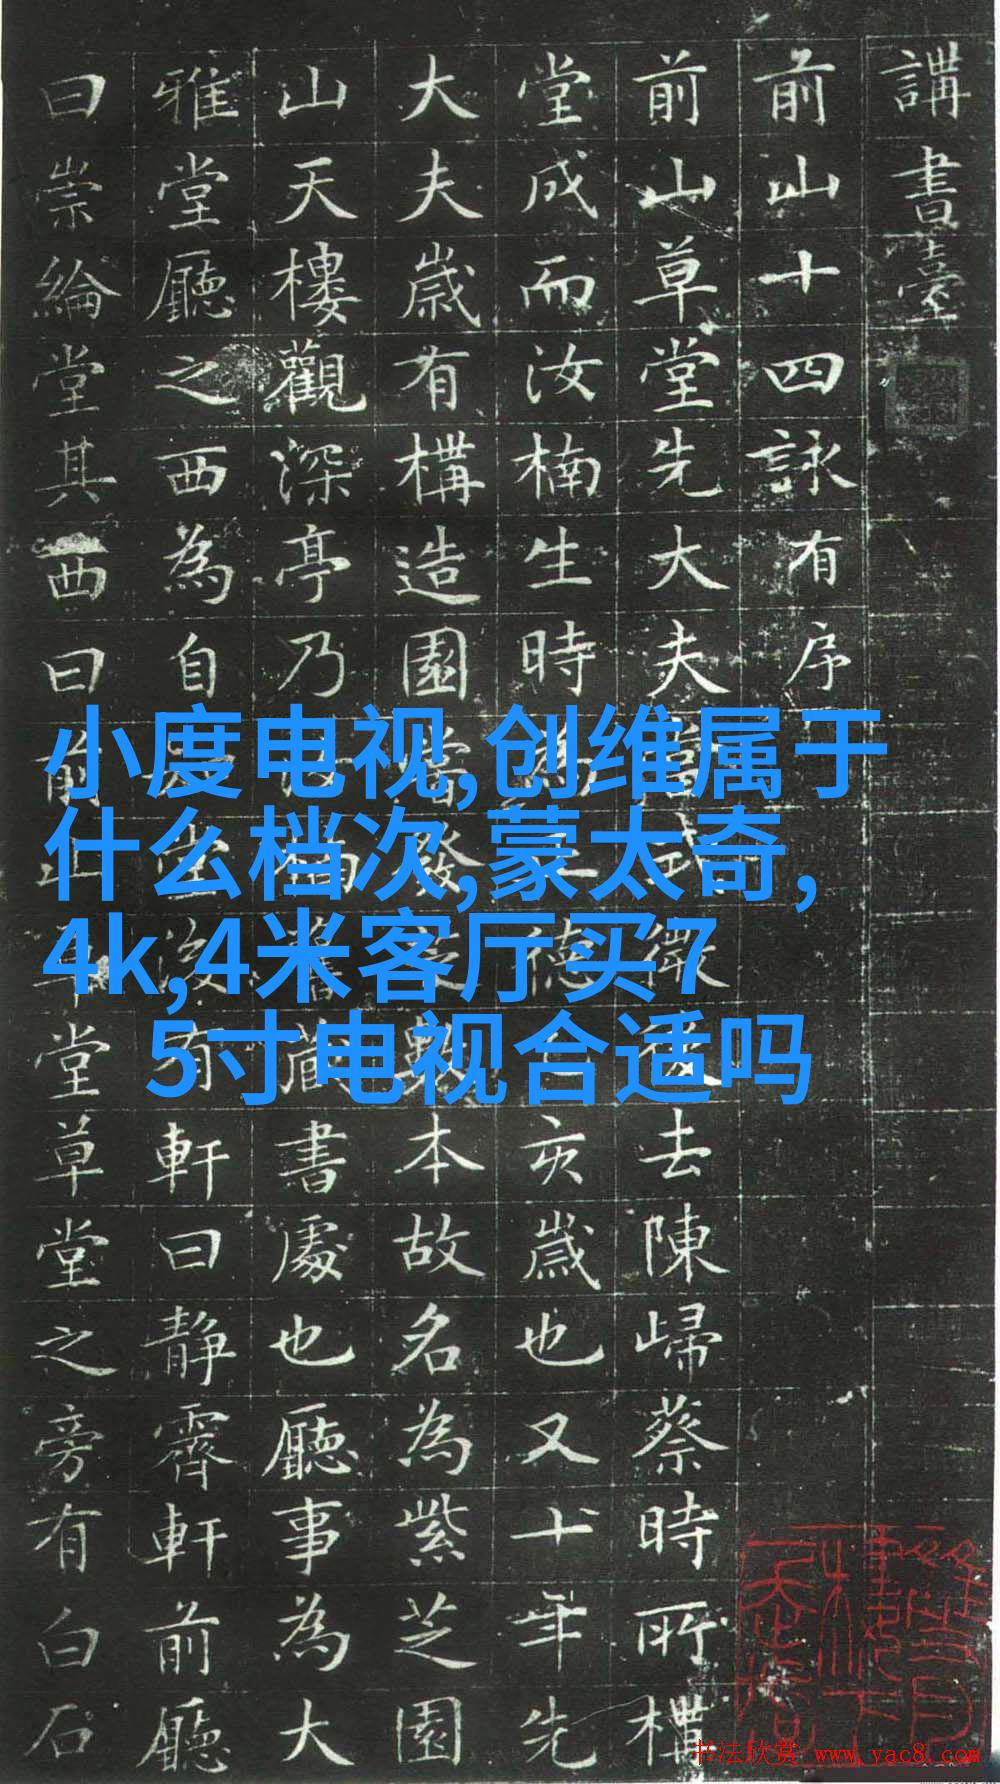 講書臺
前山十四詠有序
前山草堂先大夫去陳歸蔡時所構
堂成而汝楠生時德亥歲也又十年先
大夫歲有構造園本故名為紫芝園
山天樓觀深亭乃書處也廳事為大
雅堂廳之西為自有軒曰靜霽軒前廳
曰崇綸堂其西曰前堂草堂之旁有白石
小度电视,创维属于
什么档次,蒙太奇,
4k,4米客厅买7
5寸电视合适吗
书法欣赏 www.yac8.com